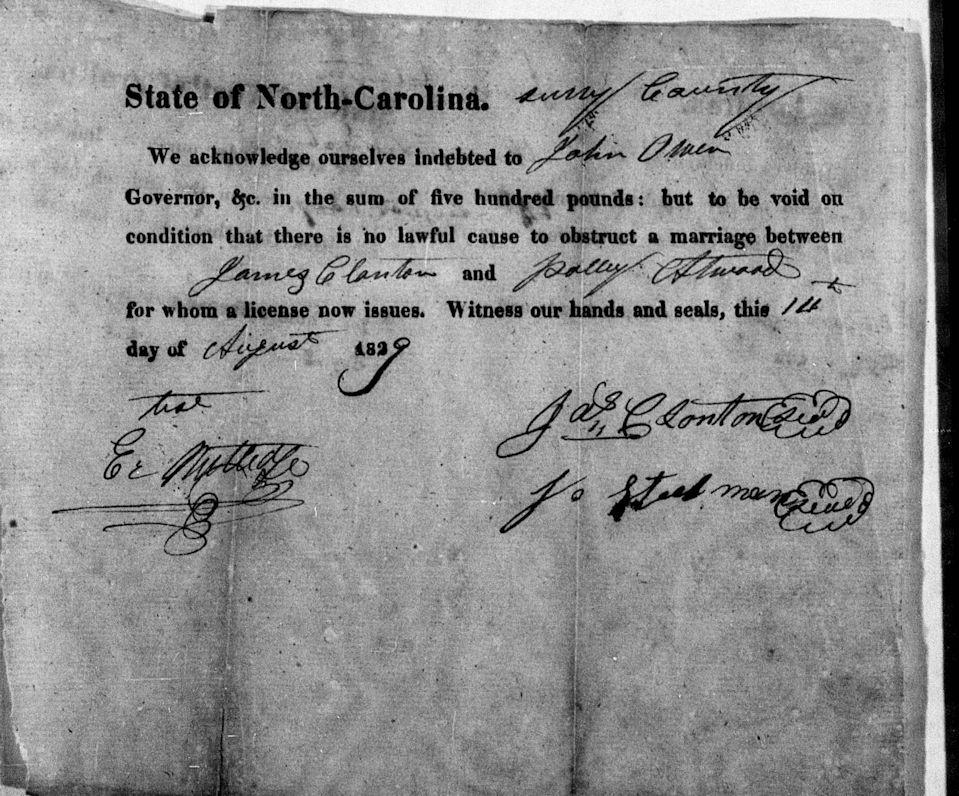 State of North-Carolina. surry County
We acknowledge ourselves indebted to John Owen
Governor, &c. in the sum of five hundred pounds: but to be void on
condition that there is no lawful cause to obstruct a marriage between
James Clanton and polley Atwood
for whom a license now issues. Witness our hands and seals, this 14th
day of August 1829
Jas Clonton seal
Jo Steelman seal